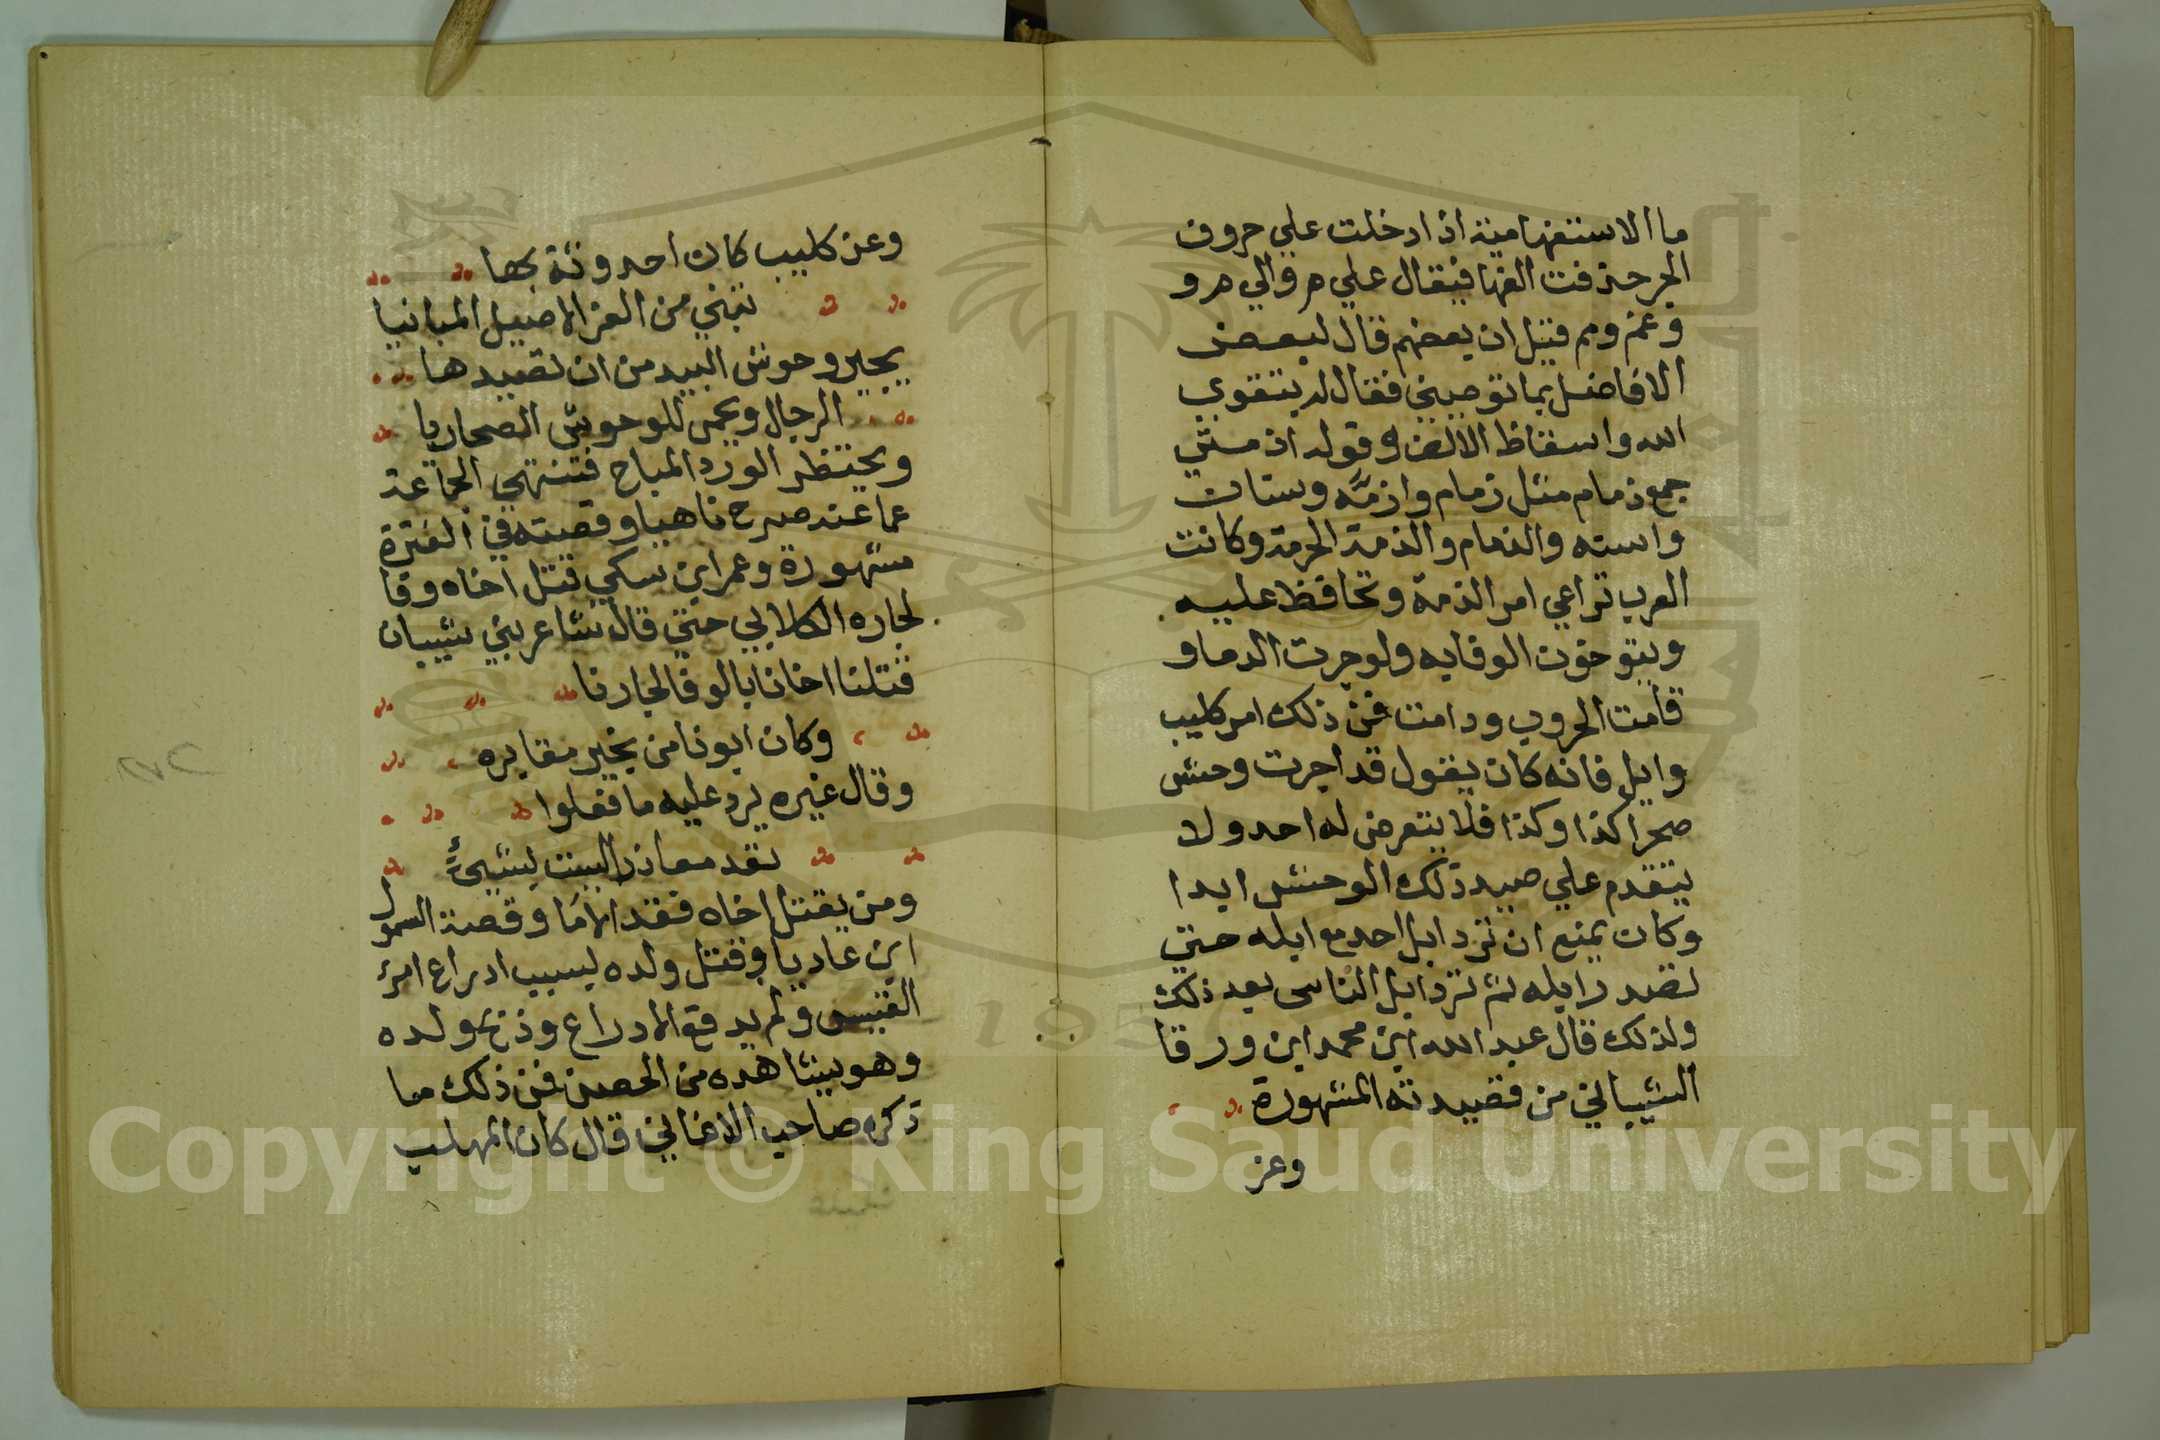 ما الاستفهامية اذا دخلت علي حروف
الجر حذفت الفها فيقال علي م والي م و
وعم ومم قيل ان بعضهم قال لبعض
الافاضل بما توصيني فقال له بتقوي
الله واسقاط الالف وقوله اذ مستي
جمع ذمام مثل زمام وازمّه وستات
واسته والذمام والذمة الحرمة وكانت
العرب تراعي امر الذمة وتحافظ عليه
ويتوخون الوفا به ولو جرت الدما و
قامت الحروب ودامت فمن ذلك امر كليب
وايل فانه كان يقول قد اجرت وحش
صحرا كذا وكذا فلا يتعرض له احد ولا
يتقدم علي صيد ذلك الوحش ابدا
وكان يمنع ان ترد ابل احد مع ابله حتي
تصدر ابله ثم ترد ابل الناس بعد ذلك
ولذلك قال عبد الله ابن محمد ابن ورقا
الشيباني من قصيدته المشهورة
وعز
وعز كليب كان احدوثة بها
تبني من العز الاصيل المبانيا
يجير وحوش البيد من ان تصيدها
الرجال ويحمي للوحوش الصحاريا
ويحتظر الورد المباح فتنتهي الجماعة
عما عنه صرح ناهيا وقصته في الفترة
مشهورة وعمر ابن سكمي قتل اخاه وفا
لجاره الكلابي حتي قال شاعر بني شيبان
قتلنا اخانا بالوفا لجارنا
وكان ابونا من يخير مقابره
وقال غيره يرد عليه ما فعلوا
تعد معاذر البيت ليشئ
ومن يقتل اخاه فقد الاما وقصة السمول
ابن عاديا وقتل ولده لسبب ادراع امرء
القيس ولم يدفع الادراع وذبح ولده
وهو يشاهده من الحصن فمن ذلك ما
ذكره صاحب الاغاني قال كان المهلب
Copyright © King Saud University
1957